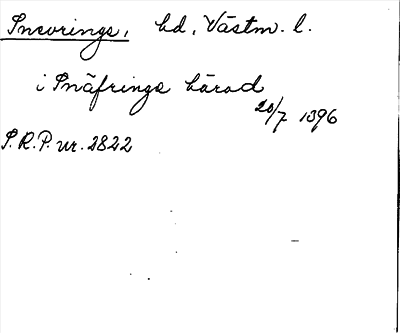 Snevringe, hd, Västm. l.
i Snäfringe härad
20/7 1396
S.R.P. nr. 2822